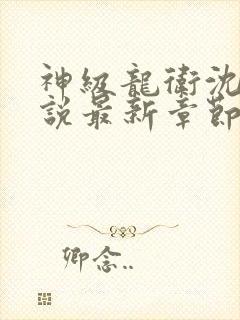 神級龍衛沈
說最新章節
卿念..